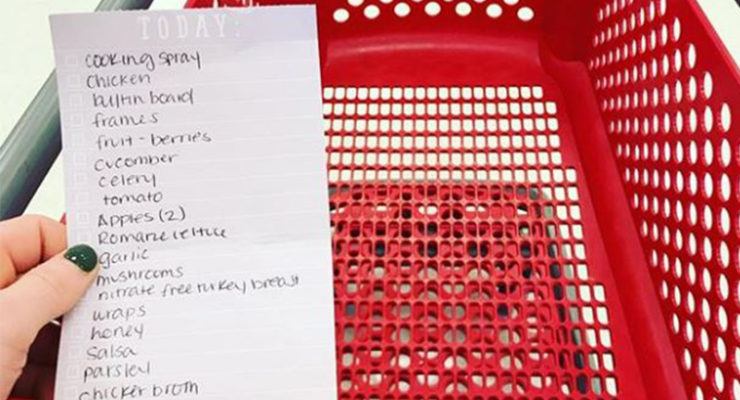 TODAY:
cooking spray
chicken
bulltin board
frames
fruit - berries
cucomber
celery
tomato
Apples (2)
Romaine lettuce
garlic
mushrooms
nitrate free turkey breast
wraps
honey
Salsa
parsley
chicken broth